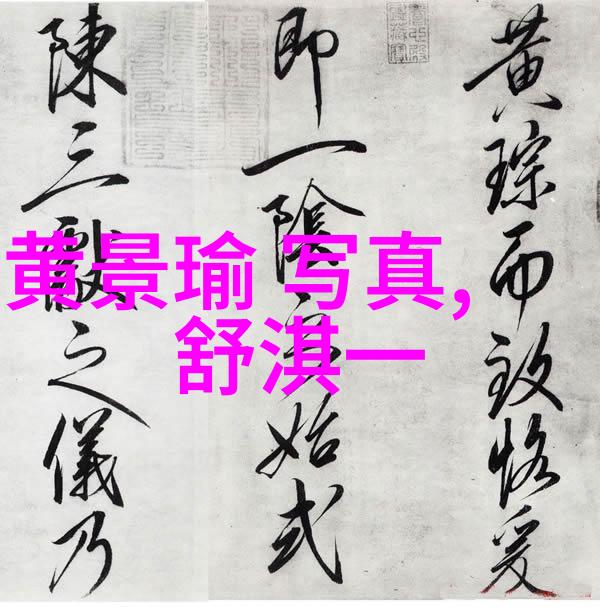 黄琮而致恪爰
即一陰始式
陳三獻之儀乃
黄景瑜 写真,
舒淇一